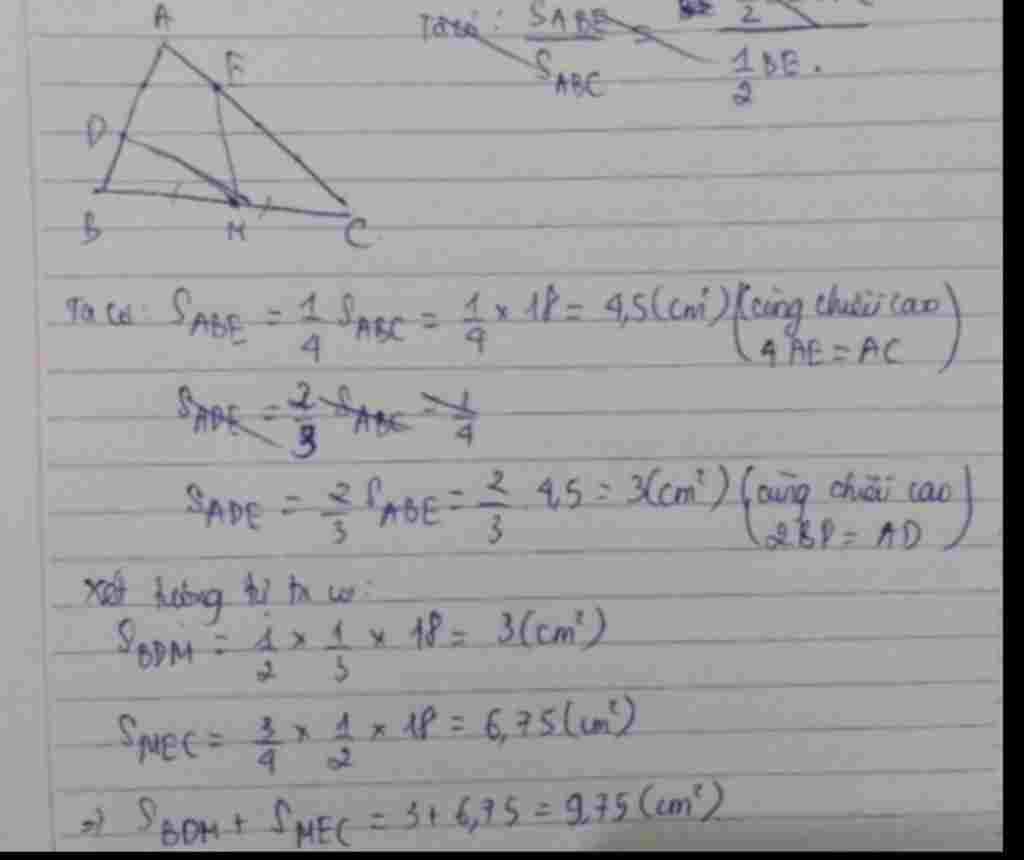 A
E
D
B
M
C
Ta có: S_ABE / S_ABC = 2 / 1/2 BE.
Ta có: S_ABE = 1/4 S_ABC = 1/4 × 18 = 4,5 (cm²) (cùng chiều cao
4 AE = AC)
S_ADE = 2/3 S_ABE = 1/4
S_ADE = 2/3 S_ABE = 2/3 . 4,5 = 3 (cm²) (cùng chiều cao
2BD = AD)
Xét tương tự ta có:
S_BDM = 1/2 × 1/3 × 18 = 3 (cm²)
S_MEC = 3/4 × 1/2 × 18 = 6,75 (cm²)
=> S_BDM + S_MEC = 3 + 6,75 = 9,75 (cm²)